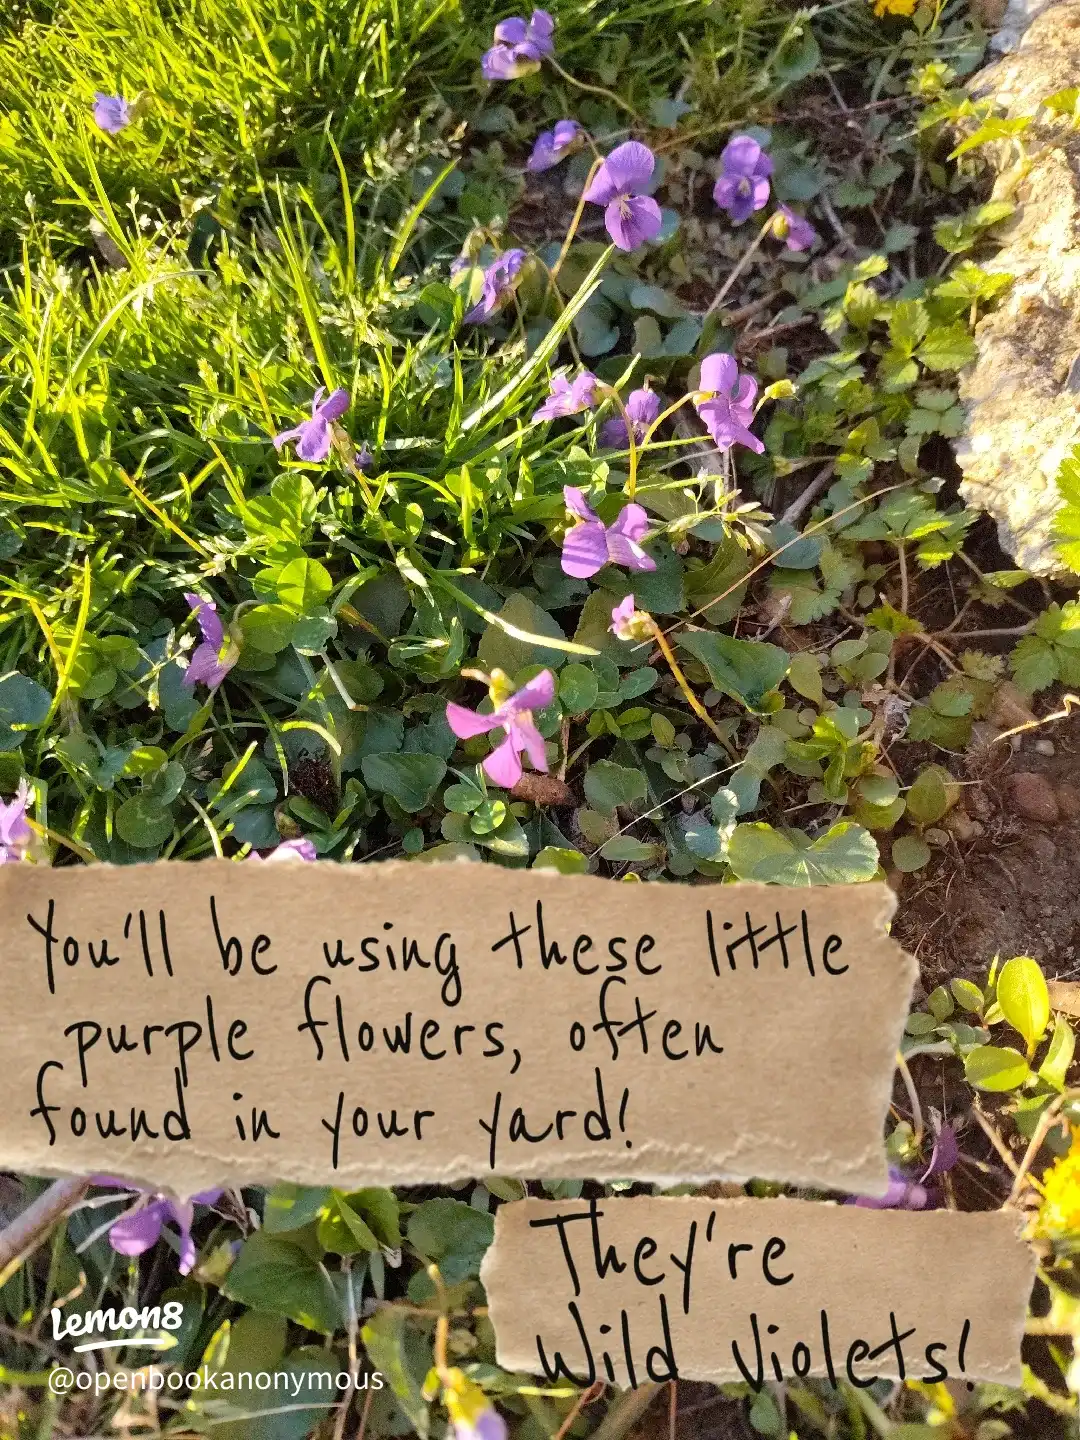 You'll be using these little
purple flowers, often
found in your yard!
They're
Wild Violets!
Lemon8
@openbookanonymous